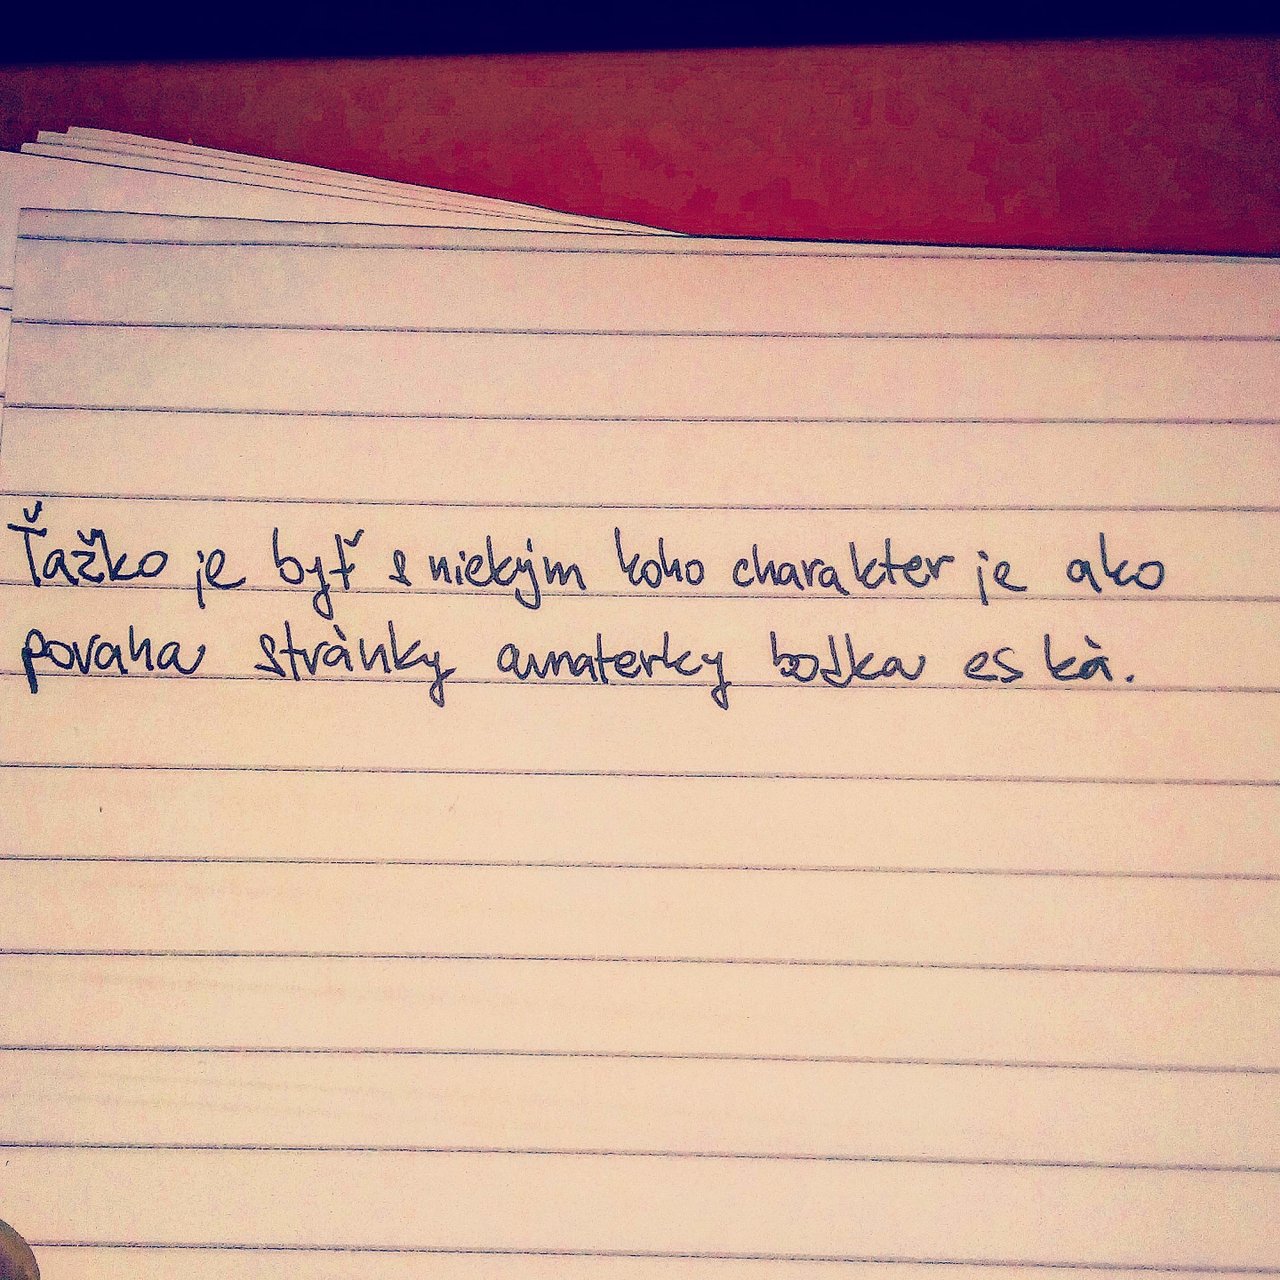 Ťažko je byť s niekým koho charakter je ako
povaha stránky amaterky bodka es ká.